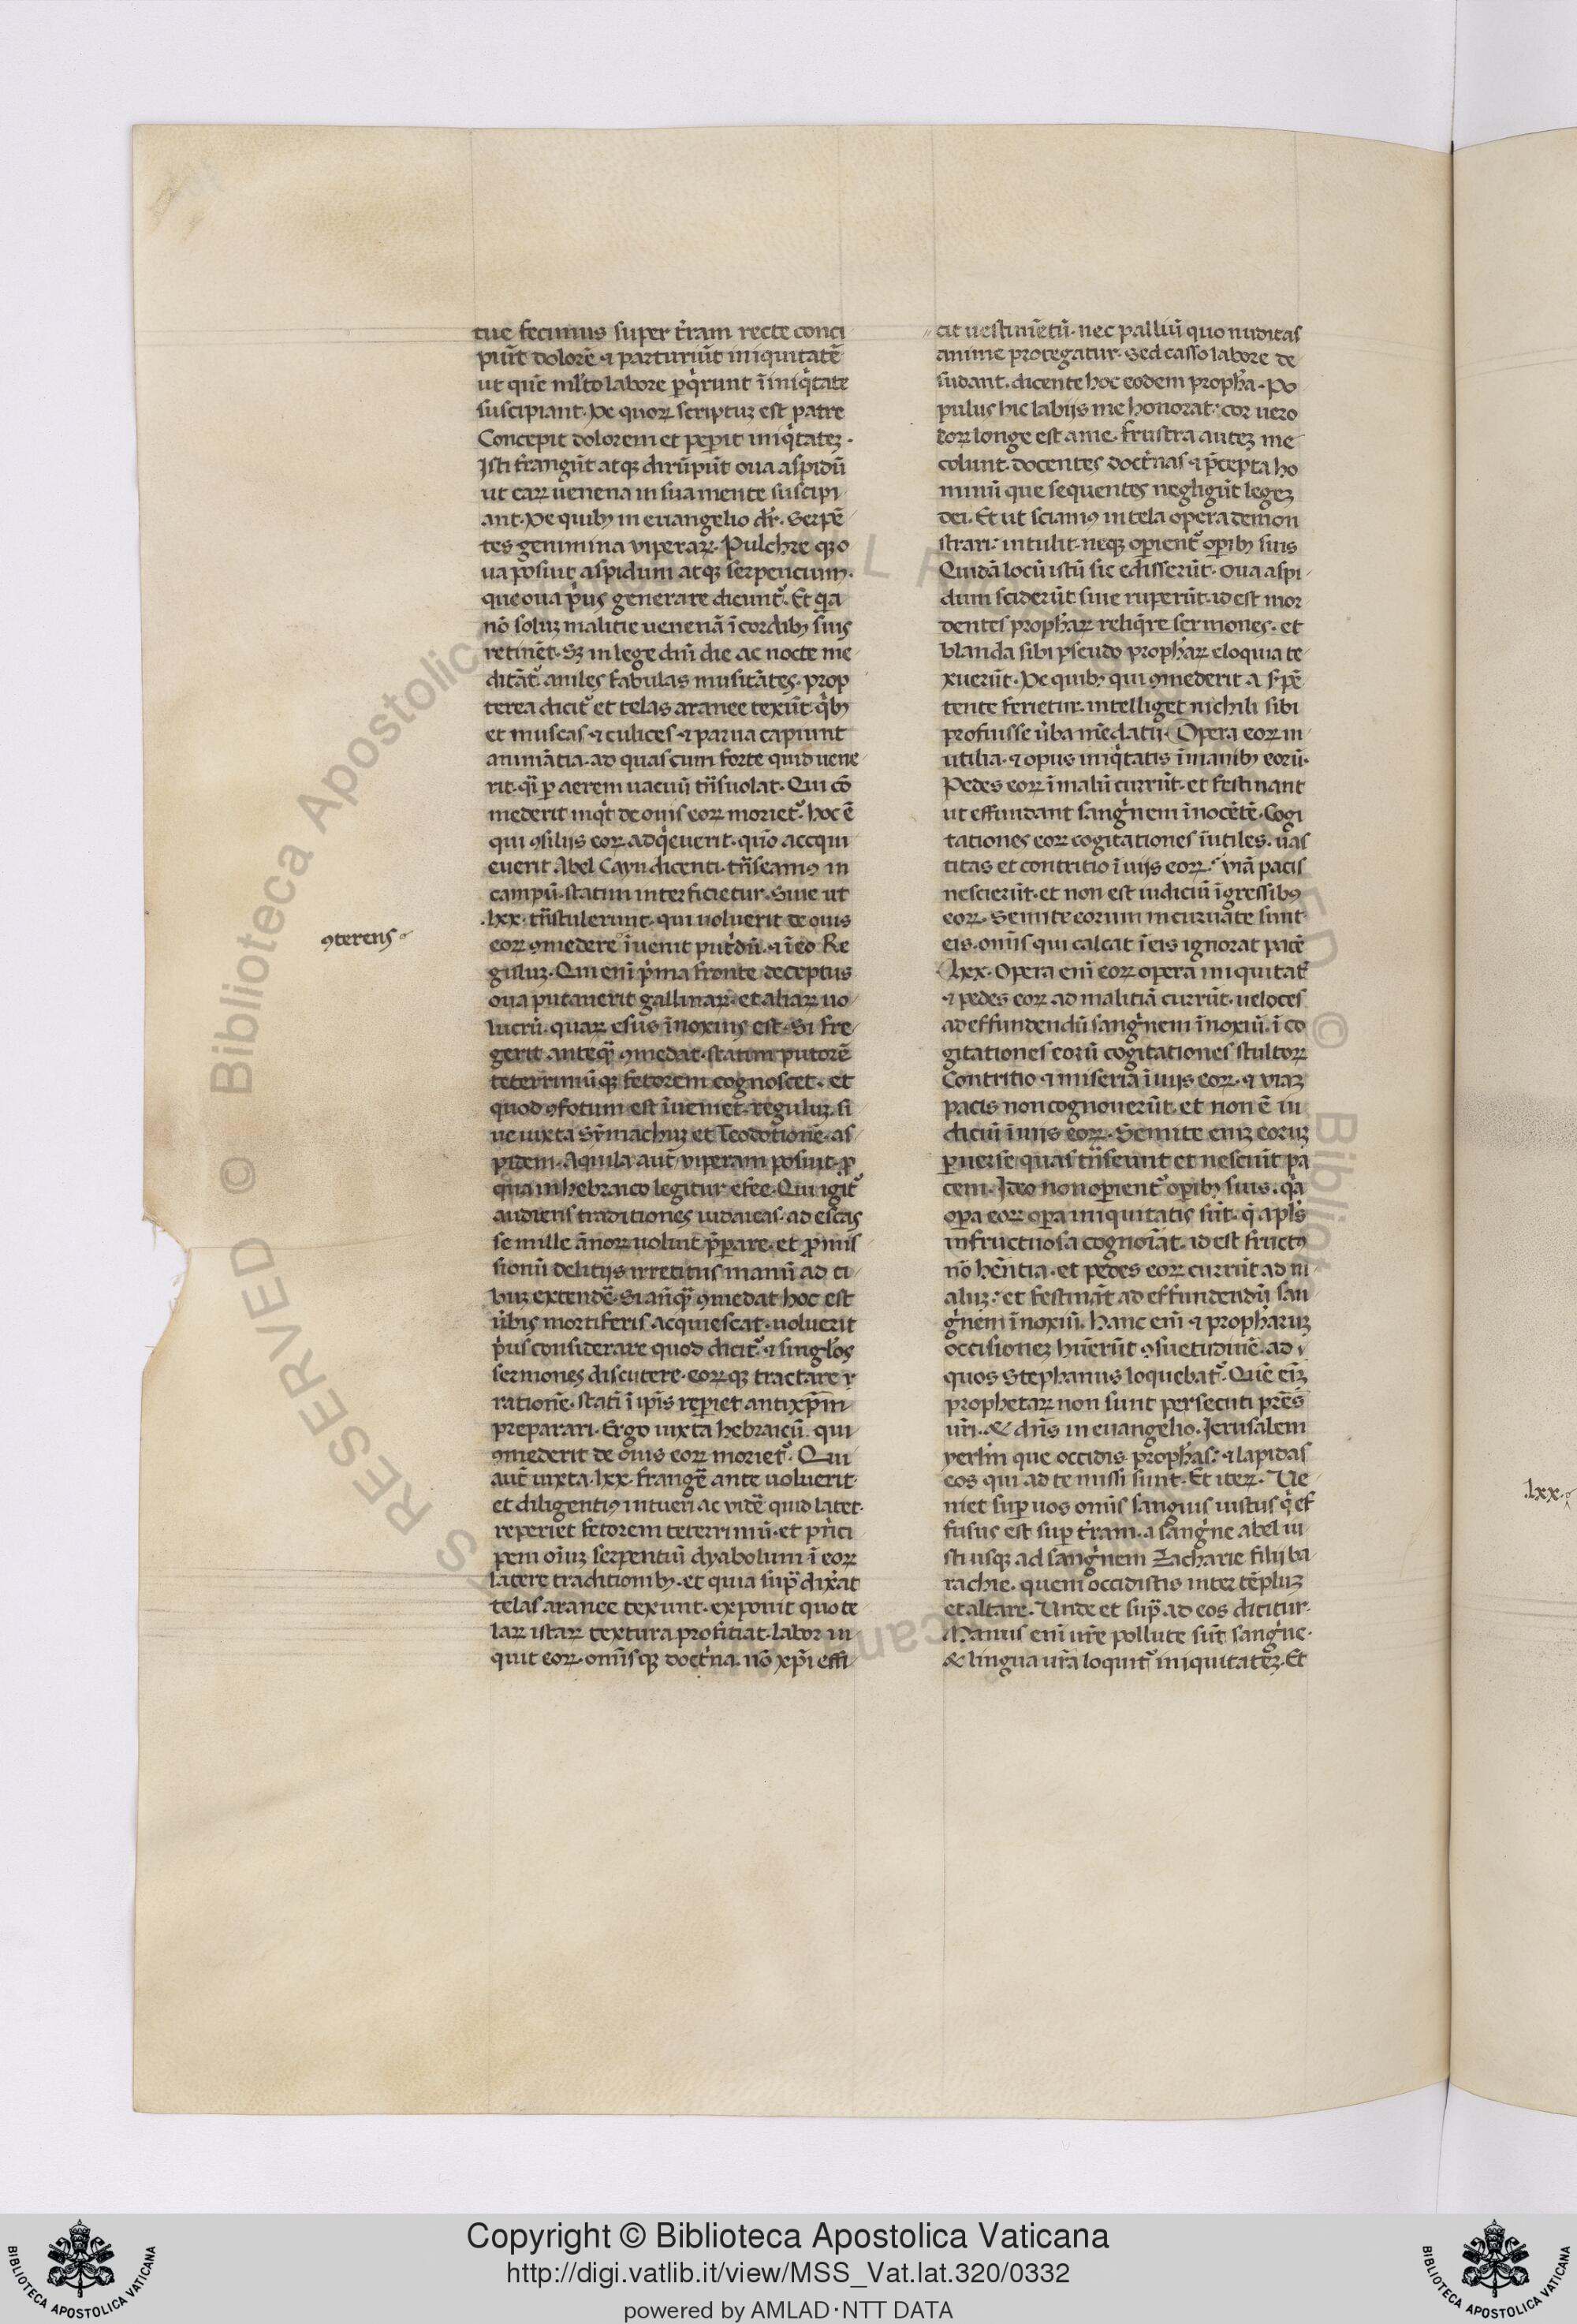 tue fecimus super t̃ram recte conci
piũt dolorẽ ⁊ parturiũt iniquitatẽ
ut quẽ ml̃to labore ꝑq̃runt ĩ iniq̃tate
suscipiant. De quoꝝ scriptuꝫ est patre
Concepit dolorem et peperit iniq̃tateꝫ.
Isti frangũt atqꝫ dirũpũt oua aspidũ
ut eaꝝ uenena in sua mente suscipi
ant. De quibꝫ in euangelio dr̃. Serpẽ
tes genimina viperaꝝ. Pulchre qꝫ o
ua posuit aspidum atqꝫ serpentium.
que oua p̃us generare dicunt᷑. Et q̃a
nõ soluꝫ malitie uenenã ĩ cordibꝫ suis
retinẽt. Sꝫ in lege dñi die ac nocte me
ditãt᷑ aniles fabulas musitãtes. prop
terea dicit᷑ et telas aranee texũt q̃bꝫ
et muscas ⁊ culices ⁊ parua capiunt
animãtia. ad quas cum forte quid uene
rit. q̃i ꝑ aerem uacuũ tñsuolat. Qui cõ
mederit inq̃t de ouis eoꝝ moriet᷑. hoc ẽ
qui ꝯsilijs eoꝝ adq̃euerit. quõ accqui
euerit Abel Cayn dicenti. tñseamꝰ in
campũ. statim interficietur. Siue ut
.lxx. tñstulerunt. qui uoluerit de ouis
ꝯterens
eoꝝ ꝯmedere ĩuenit put̃dũ. ⁊ ĩ eo Re
guluꝫ. Qui eni p̃ma fronte deceptus
oua putauerit gallinaꝝ. et aliaꝝ uo
lucrũ. quaꝝ esus ĩnoxius est. Si fre
gerit anteq̃ ꝯmedat. statim putorẽ
teterrimũqꝫ fetorem cognoscet. et
quod ꝯfotum est ĩueniet. reguluꝫ. si
ue iuxta Sỹmachuꝫ et Teodot̃ionẽ. as
pidem. Aquila aut̃ viperam posuit. ꝓ
qua in hebraico legitur efee. Qui igit᷑
audiens traditiones iudaicas. ad escas
se mille ãnoꝝ uoluit p̃ꝑare. et ꝓmis
sionũ delitijs irretitus manũ ad ci
buꝫ extendẽ. Si añq̃ ꝯmedat hoc est
ũbis mortiferis acquiescat. uoluerit
p̃us considerare quod dicit᷑. ⁊ singl̃os
sermones discutere. eoꝝqꝫ tractare
rationẽ. stati ĩ ip̃is reꝑiet antixp̃m
preparari. Ergo iuxta hebraicũ qui
ꝯmederit de ouis eoꝝ moriet᷑. Qui
aut̃ iuxta .lxx. frangẽ ante uoluerit.
et diligentiꝰ intueri ac vidẽ quid latet.
reperiet fetorem teterrimũ. et p̃nci
pem oĩuꝫ serpentiũ dyabolum ĩ eoꝝ
latere traditionibꝫ. et quia sup̃ dix̃at
telas aranee texunt. exponit quo te
laꝝ istaꝝ textura proficiat. labor in
quit eoꝝ. omnisqꝫ doct̃na. nõ xp̃i effi
cit uestimẽtũ. nec palliũ quo nuditas
anime protegatur. Sed casso labore de
sudant. dicente hoc eodem proph̃a. Po
pulus hic labijs me honorat: cor uero
eoꝝ longe est a me. frustra auteꝫ me
colunt. docentes doct̃nas ⁊ p̃cepta ho
minũ que sequentes negligũt legeꝫ
dei. Et ut sciamꝰ in tela opera demon
strari: intulit. neqꝫ oꝑient᷑ oꝑibꝫ suis
Quidã locũ istũ sic edisserũt. Oua aspi
dum sciderũt siue ruperũt. id est mor
dentes proph̃aꝝ reliq̃re sermones. et
blanda sibi pseudo proph̃aꝝ eloquia te
xuerũt. De quibꝫ qui ꝯmederit a s̃pẽ
tente ferietur. intelliget nichili sibi
profuisse ũba mẽdatũ. Opera eoꝝ in
utilia. ⁊ opus iniq̃tatis ĩ manibꝫ eorũ.
Pedes eoꝝ ĩ malũ currũt. et festinant
ut effundant sang̃nem ĩnocẽtẽ. Cogi
tationes eoꝝ cogitationes ĩutiles. uas
titas et contritio ĩ uijs eoꝝ. viã pacis
nescierũt. et non est iudiciũ ĩ gressibꝫ
eoꝝ. Semite eorum incuruate sunt
eis. om̃is qui calcat ĩ eis ignorat pacẽ
.lxx. Opera eni eoꝝ opera iniquitat᷑
⁊ pedes eoꝝ ad malitiã currũt. ueloces
ad effundendũ sang̃nem ĩnoxiũ. ĩ co
gitationes eorũ cogitationes stultoꝝ
Contritio ⁊ miseria ĩ uijs eoꝝ. ⁊ viaꝫ
pacis non cognouerũt. et non ẽ iu
diciũ ĩ uijs eoꝝ. Semite eniꝫ eoruꝫ
ꝑuerse quas tñseunt et nesciũt pa
cem. Ideo non oꝑient᷑ oꝑibꝫ suis. q̃a
oꝑa eoꝝ oꝑa iniquitatis sũt. q̃ apl̃s
infructuosa cognoĩat. id est fructꝰ
nõ hẽntia. et pedes eoꝝ currũt ad m
aluꝫ: et festinãt ad effundendũ san
g̃nem ĩnoxiũ. Hanc eni ⁊ proph̃aruꝫ
occisioneꝫ hũerũt ꝯsuetudinẽ. ad
quos Stephanus loquebat᷑. Quẽ eiꝫ
prophetaꝝ non sunt persecuti pr̃es
ur̃i. & dñs in euangelio. Jerusalem
yerlm̃ que occidis proph̃as: ⁊ lapidas
eos qui ad te missi sunt. Et iteꝝ. Ve
niet suꝑ uos om̃is sanguis iustus q̃ ef
fusus est suꝑ t̃ram. a sang̃ne abel iu
sti usqꝫ ad sang̃nem Zacharie filij ba
rachie. quem occidistis inter tẽpluꝫ
et altare. Vnde et sup̃ ad eos dicitur.
Manus eni ur̃e pollute sũt sang̃ne.
& lingua ur̃a loquit᷑ iniquitateꝫ. Et
.lxx.
Copyright © Biblioteca Apostolica Vaticana
http://digi.vatlib.it/view/MSS_Vat.lat.320/0332
powered by AMLAD·NTT DATA
BIBLIOTECA APOSTOLICA VATICANA
BIBLIOTECA APOSTOLICA VATICANA